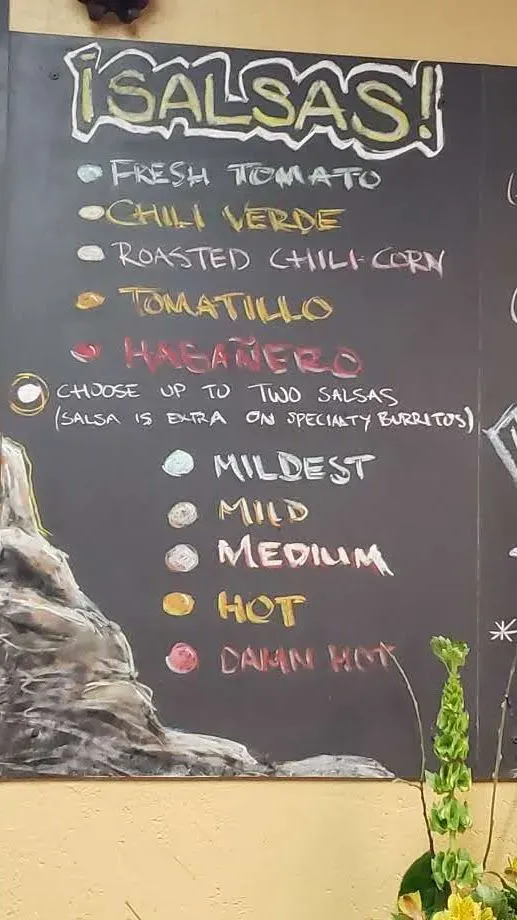 ¡SALSAS!
FRESH TOMATO
CHILI VERDE
ROASTED CHILI-CORN
TOMATILLO
HABAÑERO
CHOOSE UP TO TWO SALSAS
(SALSA IS EXTRA ON SPECIALTY BURRITOS)
MILDEST
MILD
MEDIUM
HOT
DAMN HOT